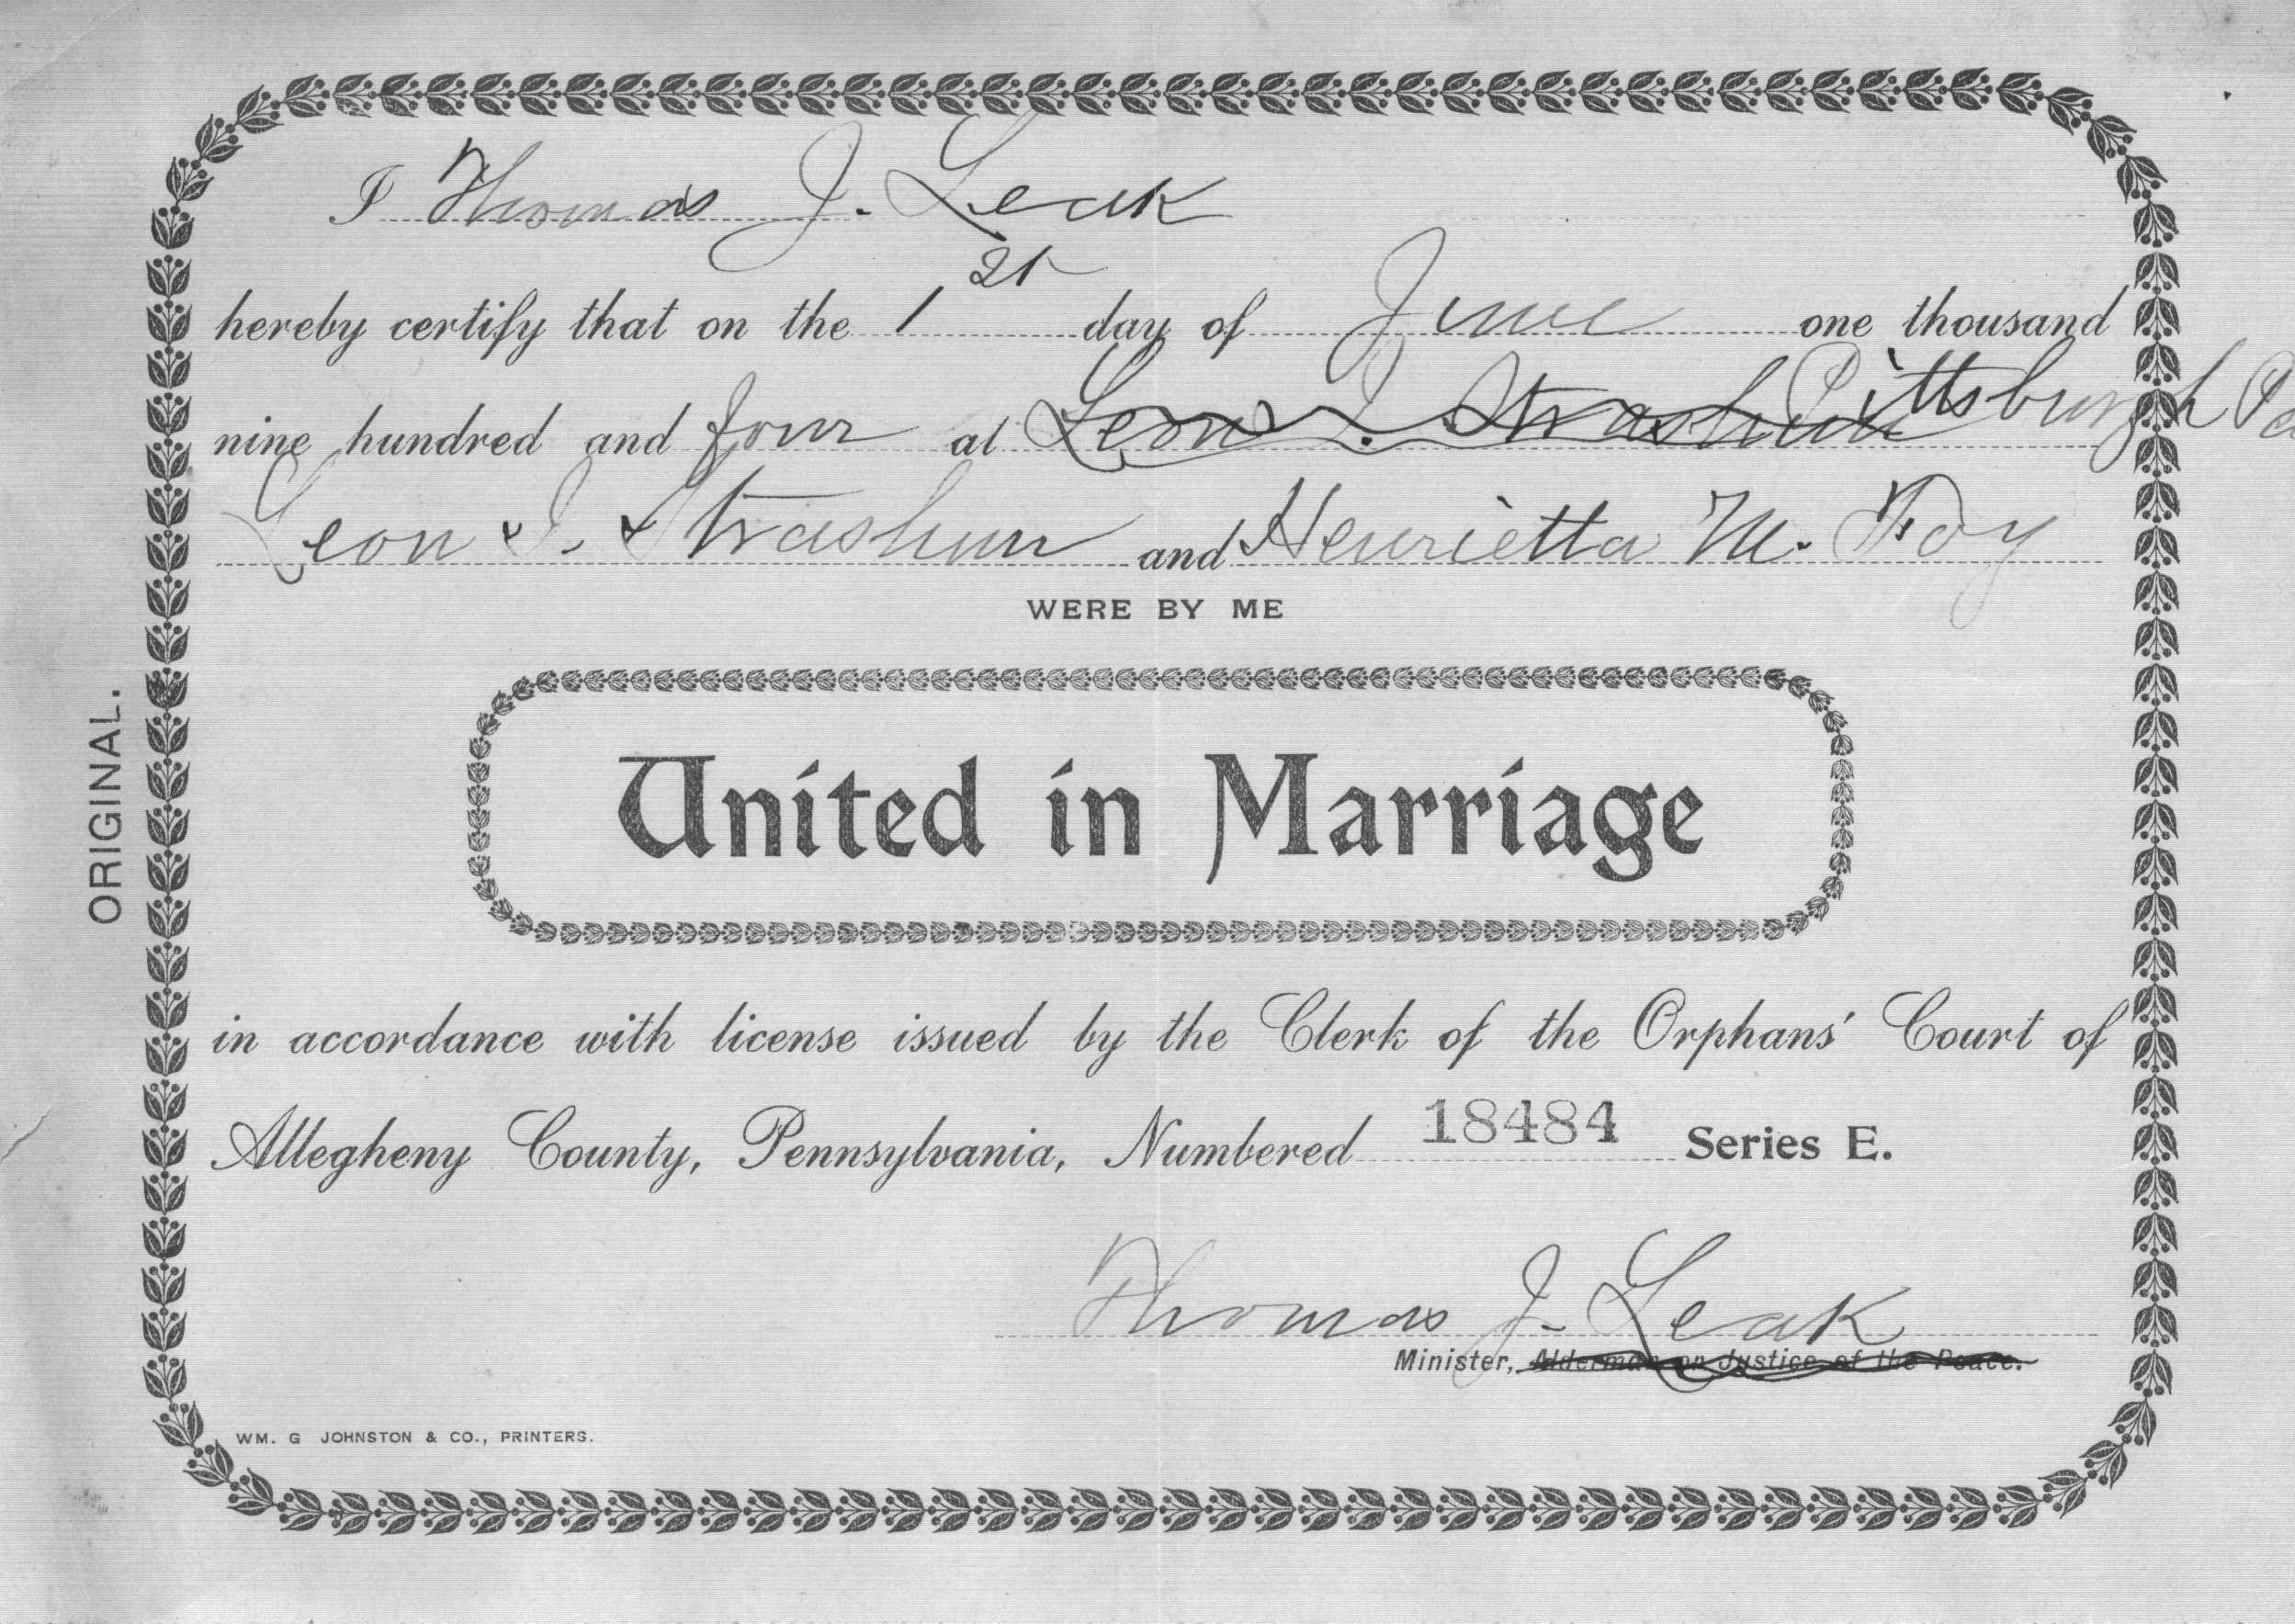 I Thomas J. Leak
hereby certify that on the 1st day of June one thousand
nine hundred and four at Leon I. Strashun Pittsburgh Pa
Leon I. Strashun and Henrietta M. Foy
WERE BY ME
United in Marriage
ORIGINAL.
in accordance with license issued by the Clerk of the Orphans' Court of
Allegheny County, Pennsylvania, Numbered 18484 Series E.
Thomas J. Leak
Minister, Alderman or Justice of the Peace.
WM. G JOHNSTON & CO., PRINTERS.